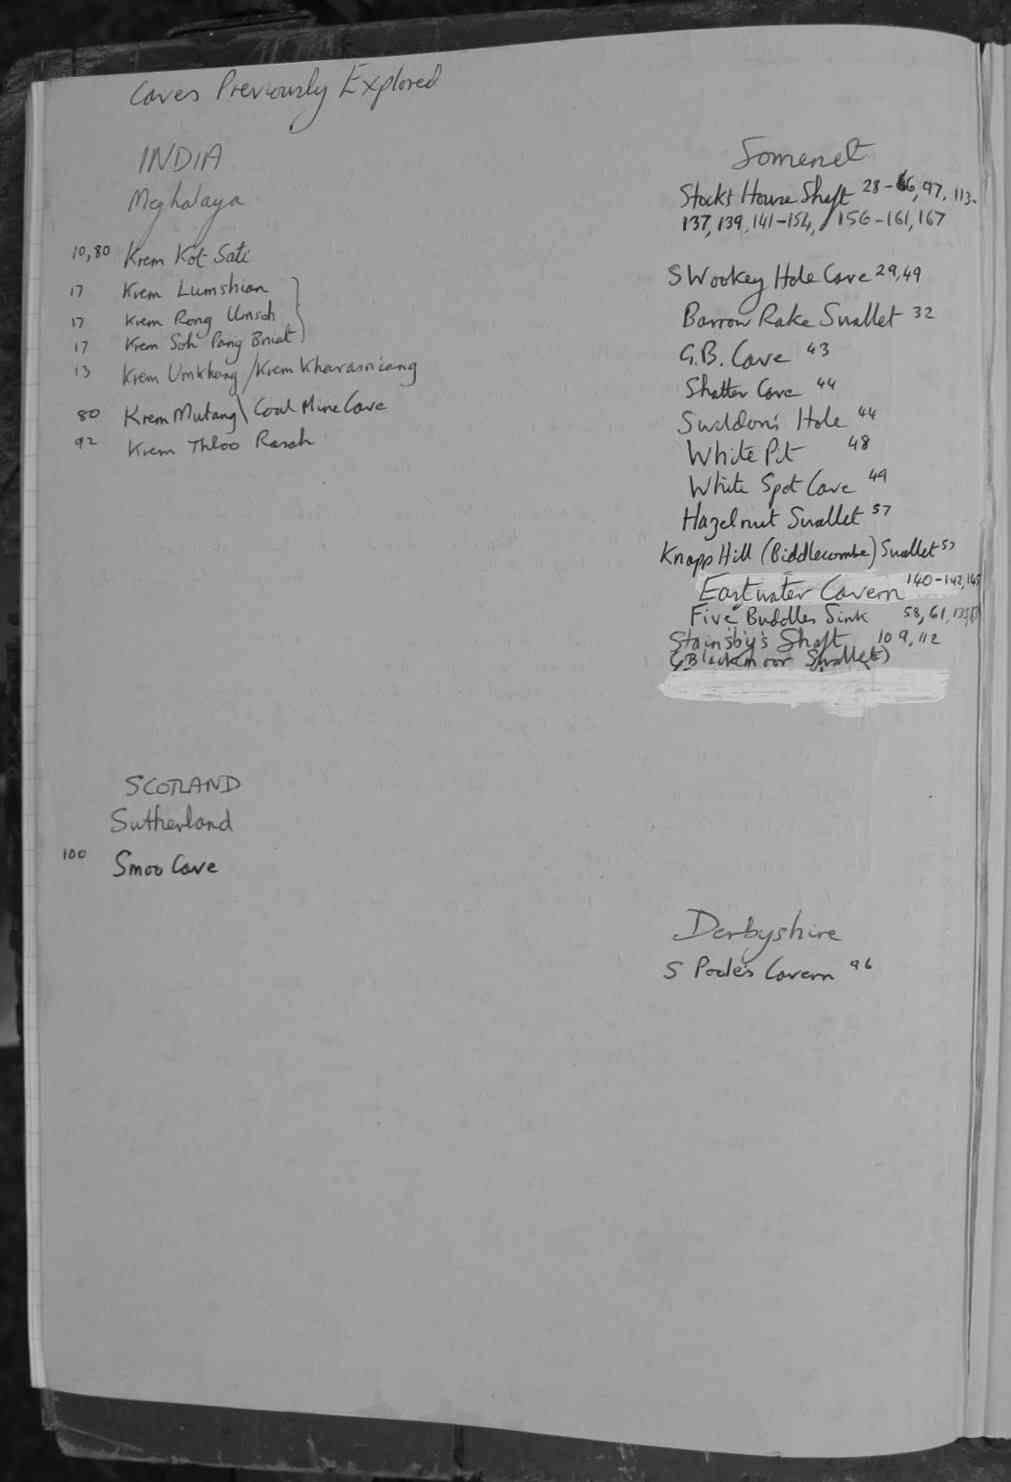 Caves Previously Explored
INDIA
Meghalaya
10,80 Krem Kot Sati
17 Krem Lumshian
17 Krem Rong Umsoh
17 Krem Soh Pang Bniat
13 Krem Umkhang/Krem Kharasniang
80 Krem Mutang\Coal Mine Cave
92 Krem Thloo Rasah
SCOTLAND
Sutherland
100 Smoo Cave
Somerset
Stocks House Shaft 28-66, 97, 113.
137, 139, 141-154, 156-161, 167
S Wookey Hole Cave 29,49
Barrow Rake Swallet 32
G.B. Cave 43
Shatter Cave 44
Swildon's Hole 44
White Pit 48
White Spot Cave 49
Hazelnut Swallet 57
Knapp Hill (Biddlecombe) Swallet 57
Eastwater Cavern 140-142,
Five Buddles Sink 58, 61,
Stainsby's Shaft 109, 112
(Blackmoor Swallet)
Derbyshire
S Poole's Cavern 96